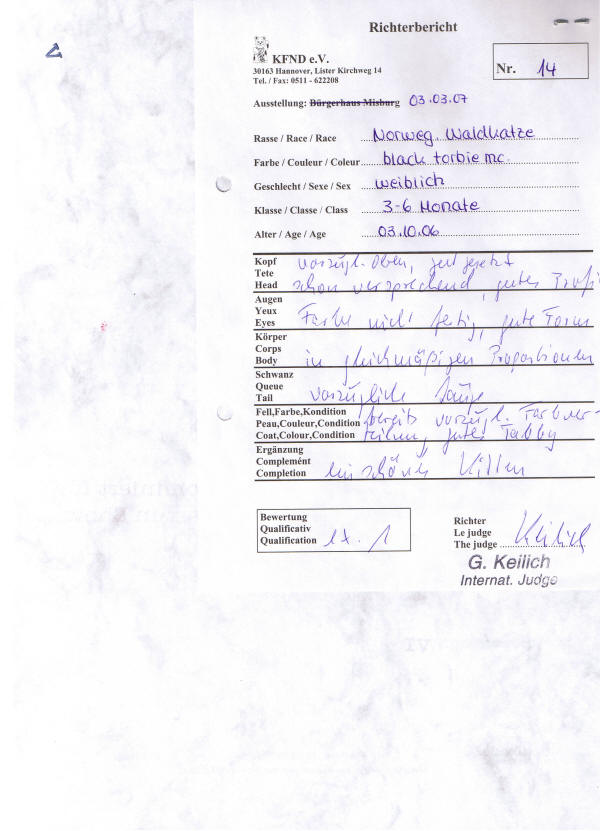 Richterbericht
KFND e.V.
30163 Hannover, Lister Kirchweg 14
Tel. / Fax: 0511 - 622208
Nr. 14
Ausstellung: Bürgerhaus Misburg 03.03.07
Rasse / Race / Race Norweg. Waldkatze
Farbe / Couleur / Coleur black torbie mc.
Geschlecht / Sexe / Sex weiblich
Klasse / Classe / Class 3-6 Monate
Alter / Age / Age 03.10.06
Kopf vorzügl. Ohren, gut gesetzt
Tete
Head schon versprechend, gutes Profil
Augen
Yeux
Eyes Farbe nicht fertig, gute Form
Körper
Corps
Body in gleichmäßigen Proportionen
Schwanz
Queue
Tail vorzügliche Länge
Fell,Farbe,Kondition bereits vorzügl. Farbver-
Peau,Couleur,Condition teilung, gutes Tabby
Coat,Colour,Condition
Ergänzung
Complemént
Completion ein schönes Kitten
Bewertung
Qualificativ
Qualification ex. 1
Richter
Le judge
The judge Keilich
G. Keilich
Internat. Judge